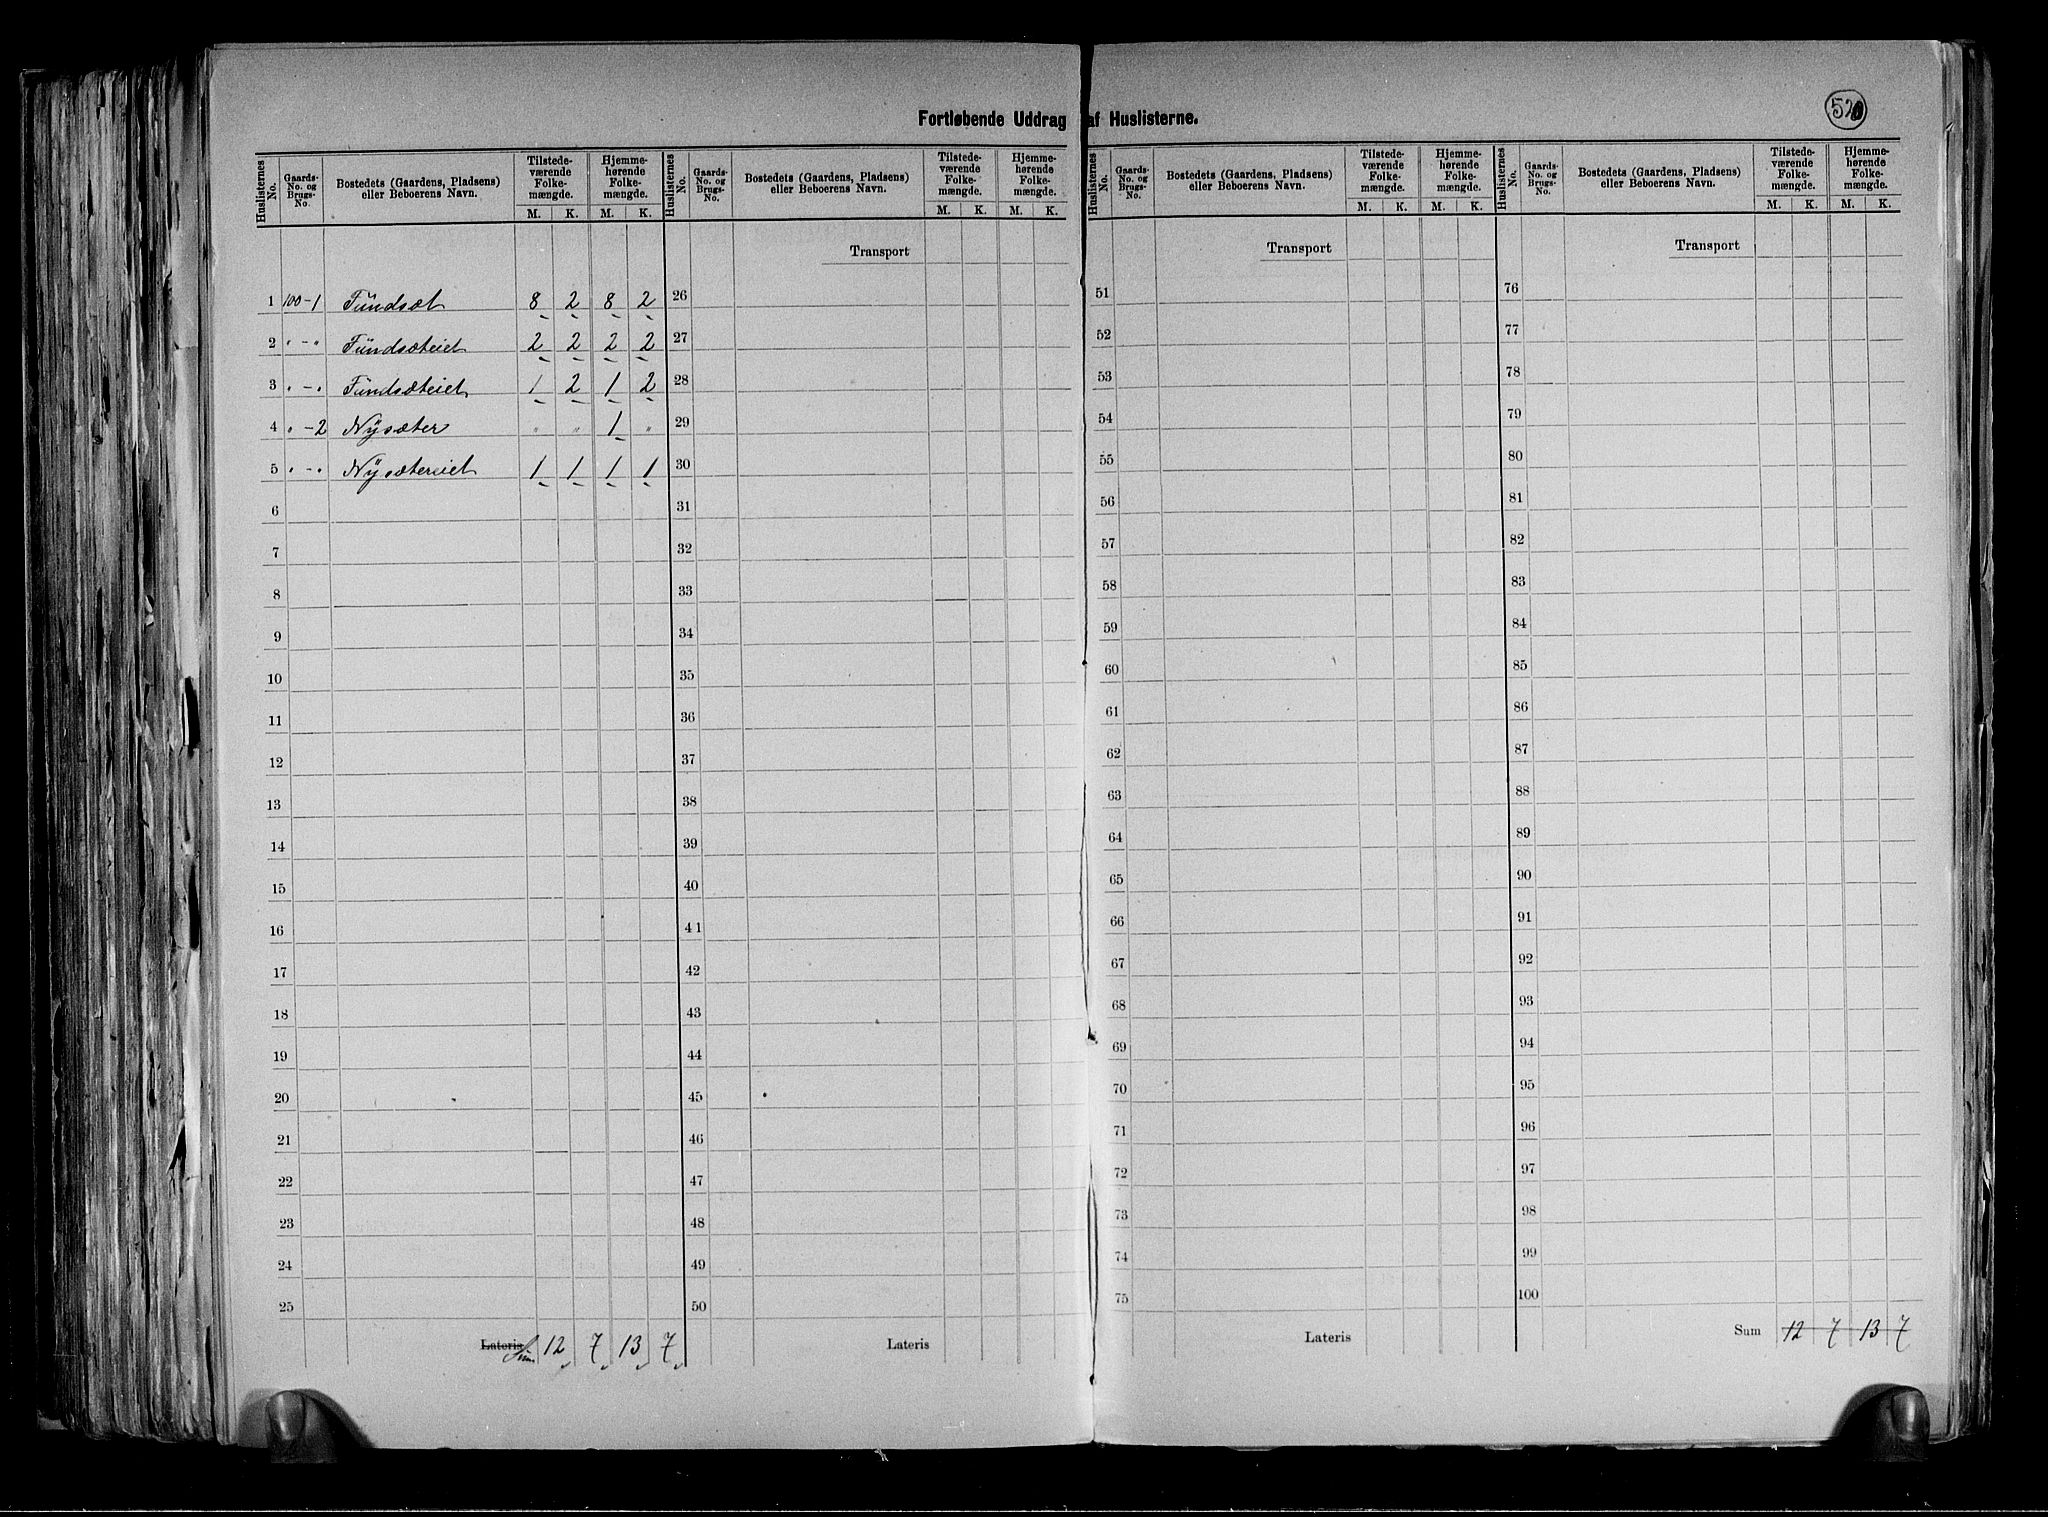 Fortløbende Uddrag af Huslisterne.
Huslisternes No. | Gaards-No. og Brugs-No. | Bostedets (Gaardens, Pladsens) eller Beboerens Navn. | Tilstedeværende Folkemængde. M. K. | Hjemmehørende Folkemængde. M. K.
1 100-1 Fündsæt 8 2 8 2
2 " - " Fündsæteiet 2 2 2 2
3 " - " Fündsæteiet 1 2 1 2
4 " - 2 Nÿsæter " " 1 "
5 " - " Nÿsætereiet 1 1 1 1
6
7
8
9
10
11
12
13
14
15
16
17
18
19
20
21
22
23
24
25
Lateris Sum 12 7 13 7
Huslisternes No. | Gaards-No. og Brugs-No. | Bostedets (Gaardens, Pladsens) eller Beboerens Navn. | Tilstedeværende Folkemængde. M. K. | Hjemmehørende Folkemængde. M. K.
Transport
26
27
28
29
30
31
32
33
34
35
36
37
38
39
40
41
42
43
44
45
46
47
48
49
50
Lateris
Huslisternes No. | Gaards-No. og Brugs-No. | Bostedets (Gaardens, Pladsens) eller Beboerens Navn. | Tilstedeværende Folkemængde. M. K. | Hjemmehørende Folkemængde. M. K.
Transport
51
52
53
54
55
56
57
58
59
60
61
62
63
64
65
66
67
68
69
70
71
72
73
74
75
Lateris
Huslisternes No. | Gaards-No. og Brugs-No. | Bostedets (Gaardens, Pladsens) eller Beboerens Navn. | Tilstedeværende Folkemængde. M. K. | Hjemmehørende Folkemængde. M. K.
Transport
76
77
78
79
80
81
82
83
84
85
86
87
88
89
90
91
92
93
94
95
96
97
98
99
100
Sum 12 7 13 7